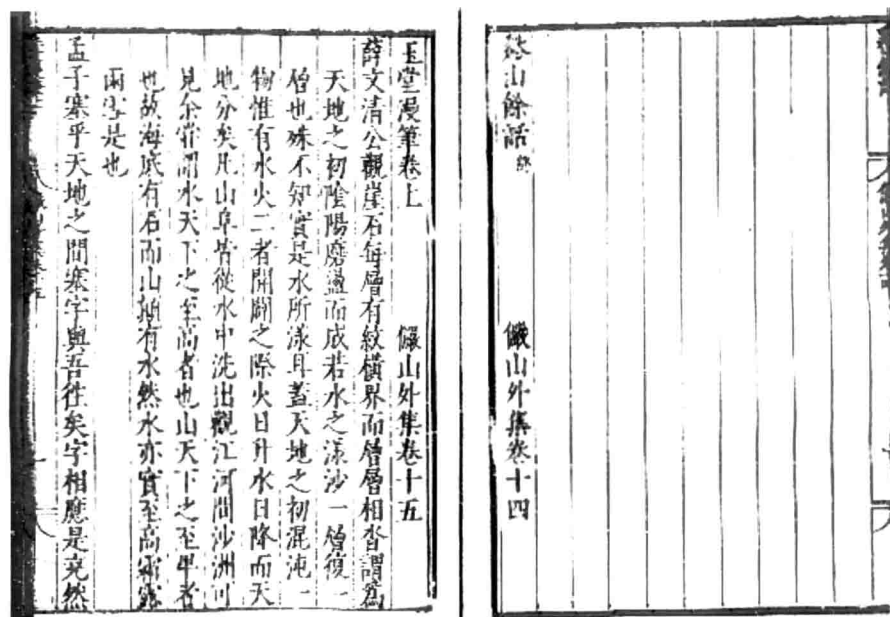 谿山餘話終 儼山外集卷十四
玉堂漫筆卷上 儼山外集卷十五
薛文清公觀崖石每層有紋橫界而層層相沓謂爲
天地之初陰陽磨盪而成若水之漾沙一層復一
層也殊不知實是水所漾耳蓋天地之初混沌一
物惟有水火二者開闢之際火日升水日降而天
地分矣凡山阜皆從水中洗出觀江河間沙洲可
見余嘗謂水天下之至高者也山天下之至卑者
也故海底有石而山巔有水然水亦實至高霜露
雨雪是也
孟子塞乎天地之間塞字與吾往矣字相應是竟然